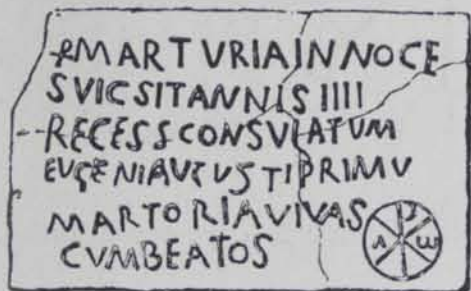 MARTVRIA INNOCE
SVICSITANNIS IIII
RECESS CONSVLATVM
EUGENIAUGUSTIPRIMV
MARTORIA VIVAS
CVMBEATOS
A ω